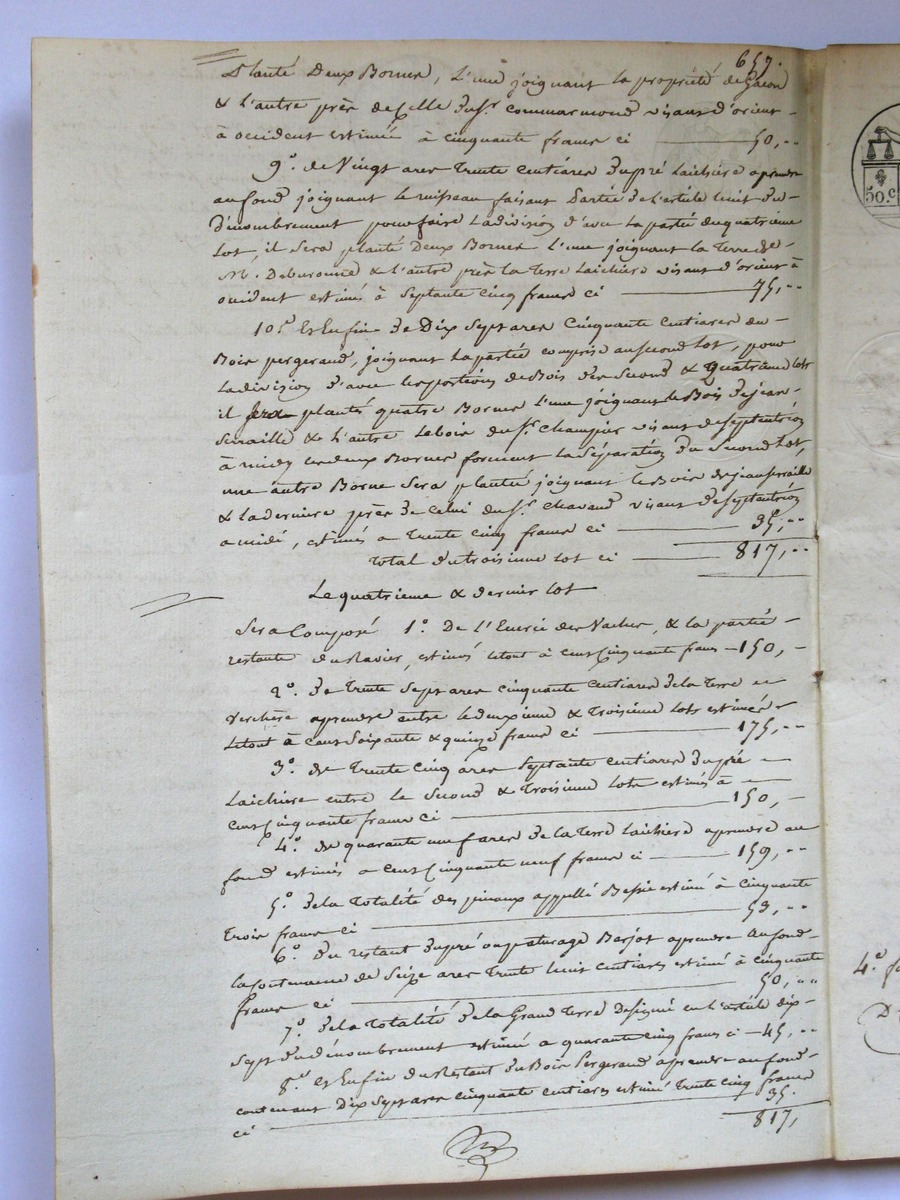 657.
planté Deux Bornes, L'une joignant la propriété de Gacon
& l'autre près de celle du Sr. Commarmond visant d'orient
à occident estimée à cinquante francs ci 50,..
9.° de Vingt ares Trente Centiares du pré Laichere aprendre
au fond joignant le ruisseau faisant Partie de l'article huit du
Dénombrement pour faire La division d'avec La partie du quatrieme
Lot, il Sera planté Deux Bornes L'une joignant la Terre de
M. Debaronne & l'autre près la Terre Laichere visant d'orient à
occident estimés à Septante cinq francs ci 75,..
10.° Et Enfin de Dix Sept ares Cinquante Centiares du
Bois pergeraud, joignant La partie comprise au Second Lot, pour
La division d'avec les portions de Bois des Second & Quatrieme lots
il sera planté quatre Bornes L'une joignant le Bois de jean
Serraille & l'autre Le bois du Sr. Champier visant de Septentrion
à midy ces deux Bornes forment la Séparation du Second Lot,
une autre Borne Sera planté joignant le Bois de jean Serraille
& la derniere près de Celui du Sr. Chavand visant de Septentrion
a midi, estimés a Trente Cinq francs ci 35,..
Total du troisieme Lot ci 817,..
Le quatrieme & dernier Lot
Sera Composé 1.° De l'Ecurie des Vaches, & la partie
restante du Ravier, estimés le tout à cent Cinquante francs 150,
2.° de Trente Sept ares cinquante Centiares de la Terre
Verchere aprendre entre le deuxieme & Troisieme Lots estimés
Letout à Cent Soixante & quinze francs ci 175,..
3.° de Trente Cinq ares Septante centiares du pré
Laichere entre le Second & Troisieme Lots estimés à
cent Cinquante francs ci 150,
4.° de quarante neuf ares de la Terre Laichere aprendre au
fond estimés a cent Cinquante neuf francs ci 159,..
5.° de la Totalité des appellé Bessie estimé à Cinquante
Trois francs ci 53,..
6.° Du restant du pré ou paturage Barjot aprendre Au fond
la Contenance de Seize ares Trente huit Centiares estimé à cinquante
francs ci 50,..
7.° de la Totalité de la Grand Terre Designé en l'article dix
Sept du dénombrement estimé a quarante cinq francs ci 45,..
8.° et Enfin du Restant du Bois Pergeraud aprendre au fond
contenant Dix Sept ares cinquante centiares estimé Trente cinq francs
ci 35.
817,
50.c
4.e